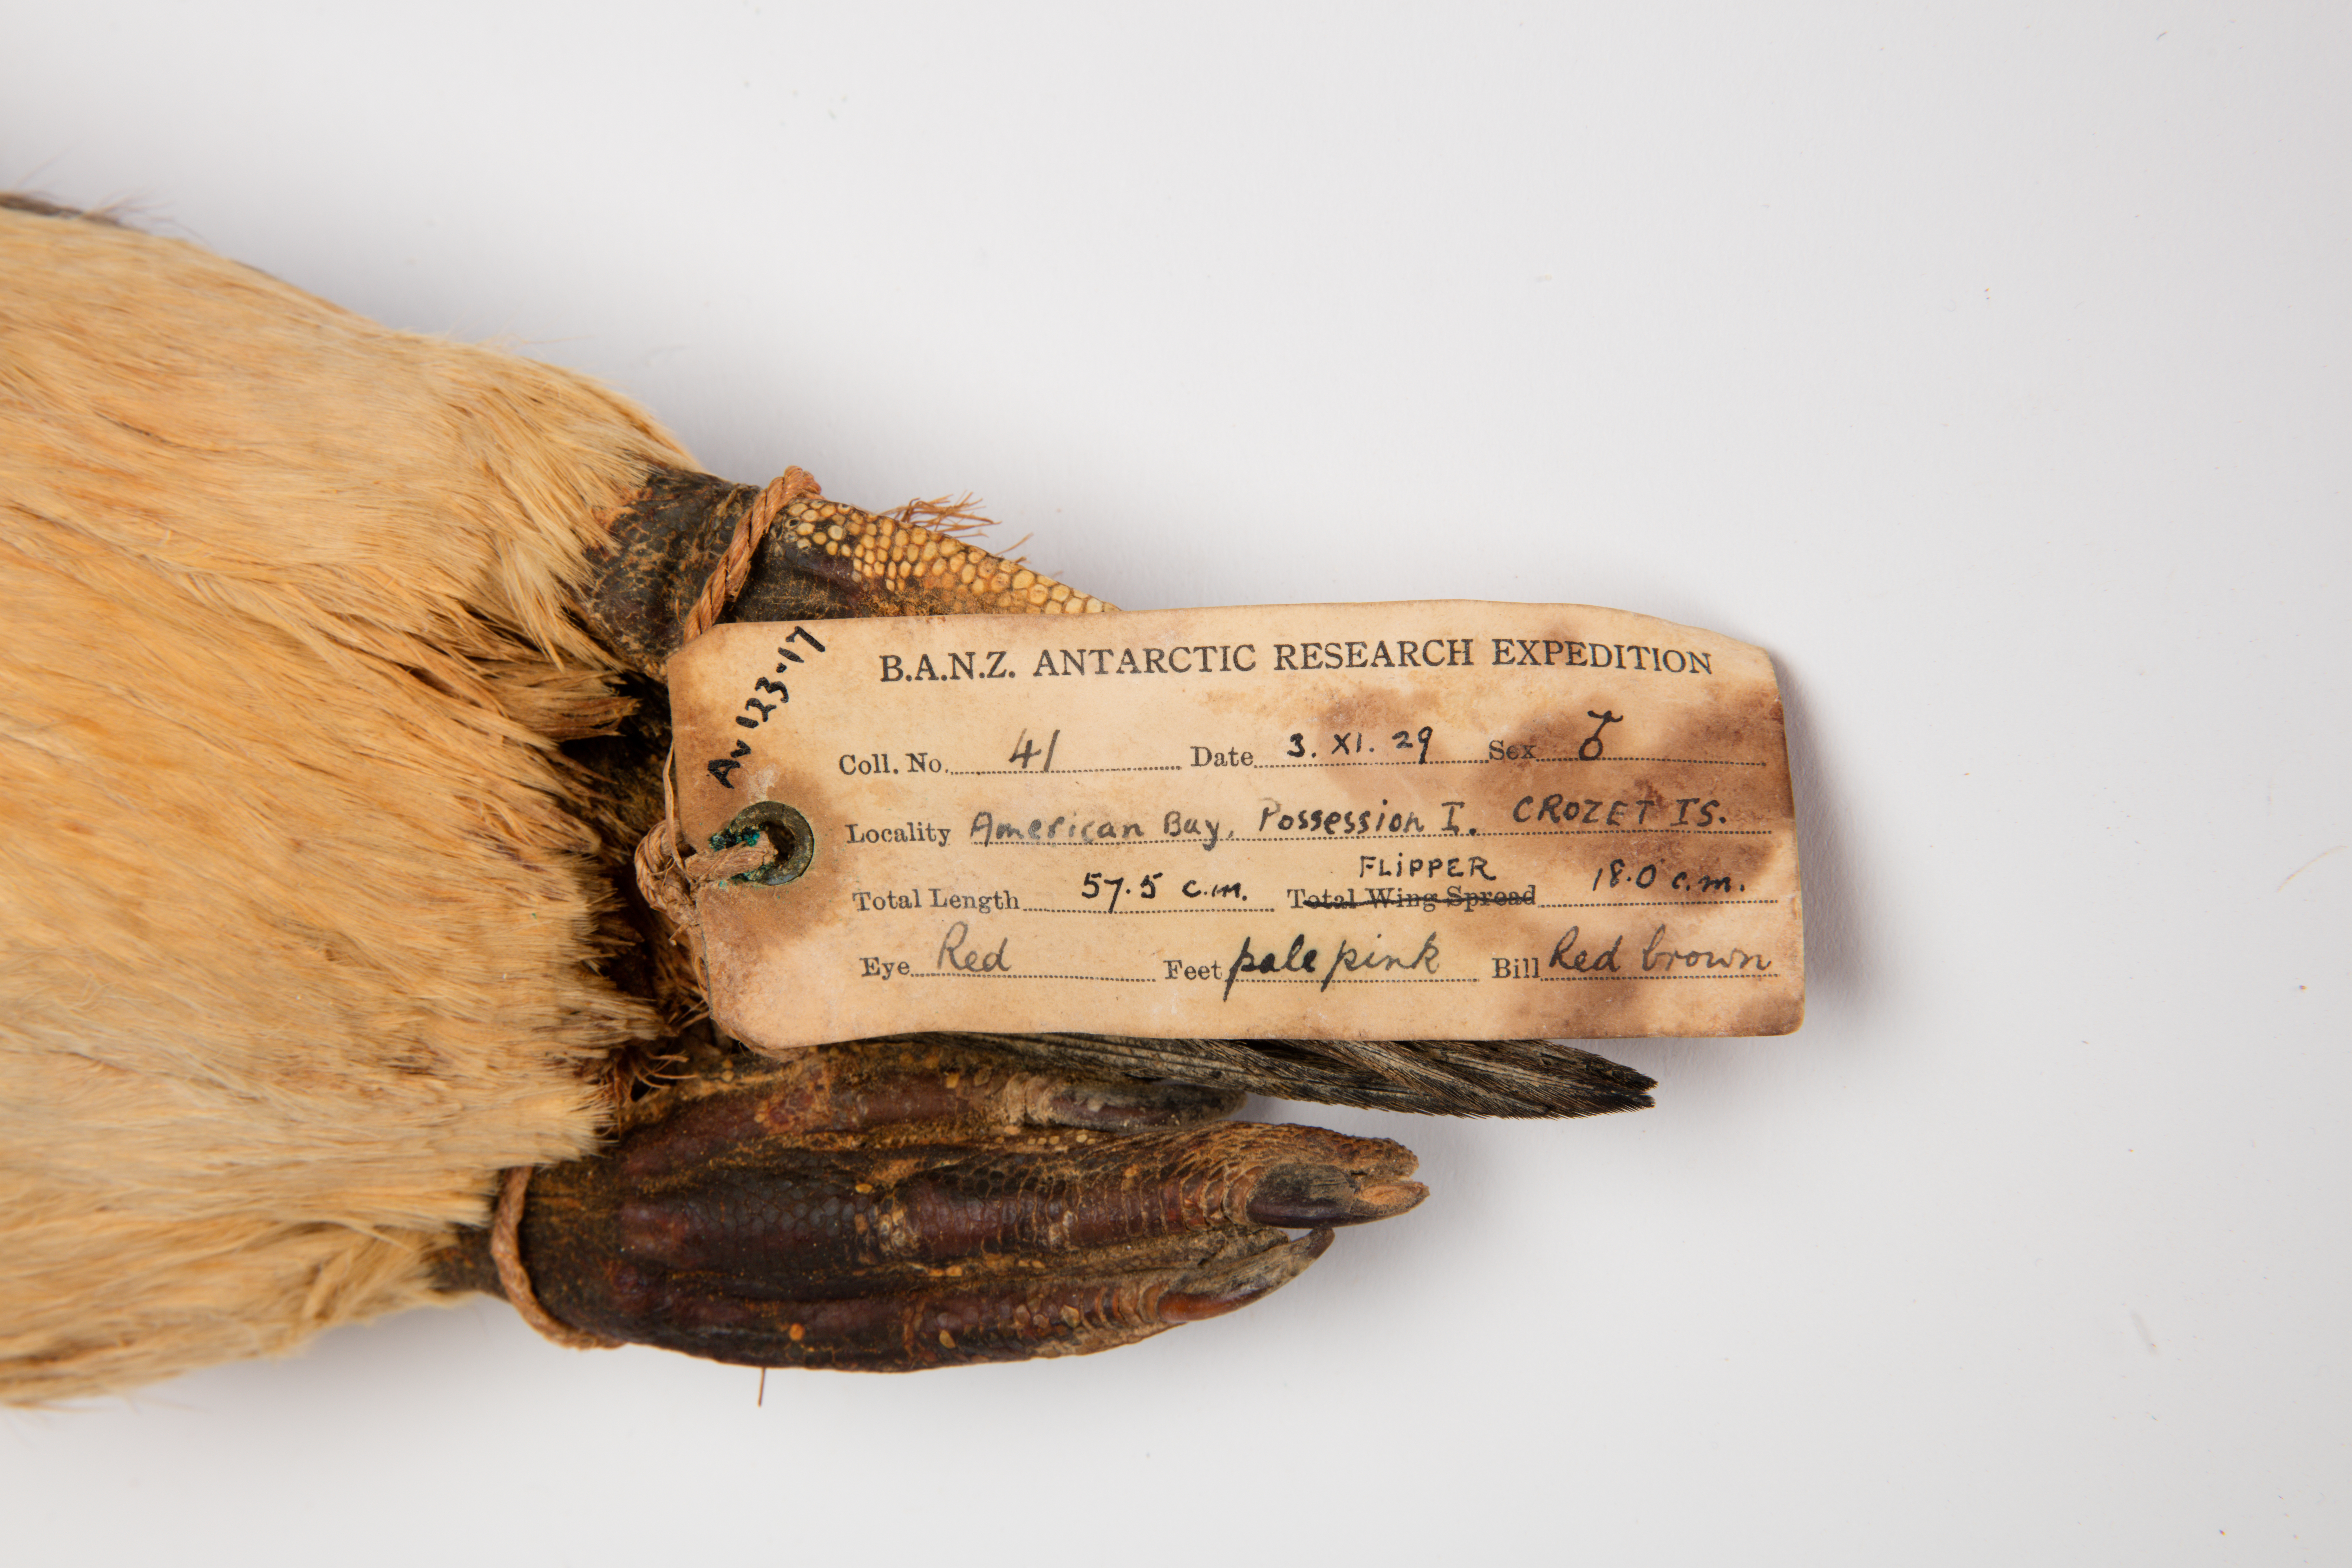 Av 123.17
B.A.N.Z. ANTARCTIC RESEARCH EXPEDITION
Coll. No. 41 Date 3. XI. 29 Sex ♂
Locality American Bay, Possession I. CROZET IS.
FLIPPER
Total Length 57.5 c.m. Total Wing Spread 18.0 c.m.
Eye Red Feet pale pink Bill Red brown